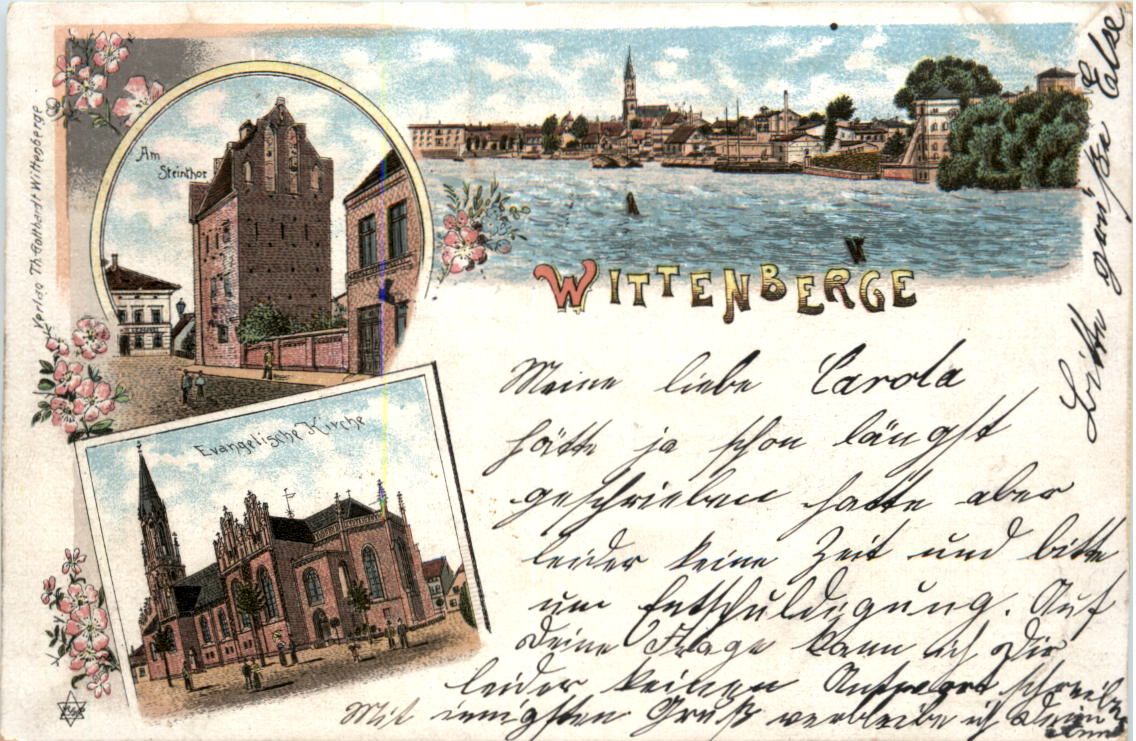 Verlag Th. Gotthardt Wittenberge
Am
Steinthor
WITTENBERGE
Evangelische Kirche
Meine liebe Carola
hätte ja schon längst
geschrieben hatte aber
leider keine Zeit und bitte
um Entschuldigung. Auf
Deine Frage kann ich Dir
leider keinen Antwort schreiben
Mit innigsten Gruß verbleibe ich Deine
Anna
Bitte grüße Else